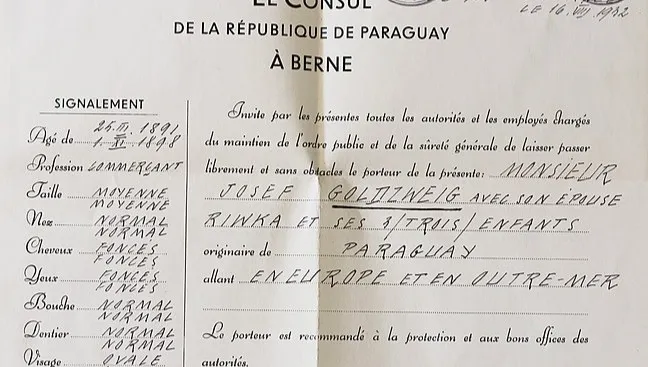 LE CONSUL
LE 16. VIII 1942
DE LA RÉPUBLIQUE DE PARAGUAY
À BERNE
SIGNALEMENT
25. III. 1891
Agé de 1. XI. 1898
Profession COMMERÇANT
Taille MOYENNE
MOYENNE
Nez NORMAL
NORMAL
Cheveux FONCÉS
FONCÉS
Yeux FONCÉS
FONCÉS
Bouche NORMAL
NORMAL
Dentier NORMAL
NORMAL
Visage OVALE
Invite par les présentes toutes les autorités et les employés chargés
du maintien de l'ordre public et de la sûreté générale de laisser passer
librement et sans obstacles le porteur de la présente: MONSIEUR
JOSEF GOLDZWEIG AVEC SON ÉPOUSE
RIWKA ET SES 3/TROIS/ENFANTS
originaire de PARAGUAY
allant EN EUROPE ET EN OUTRE-MER
Le porteur est recommandé à la protection et aux bons offices des
autorités.